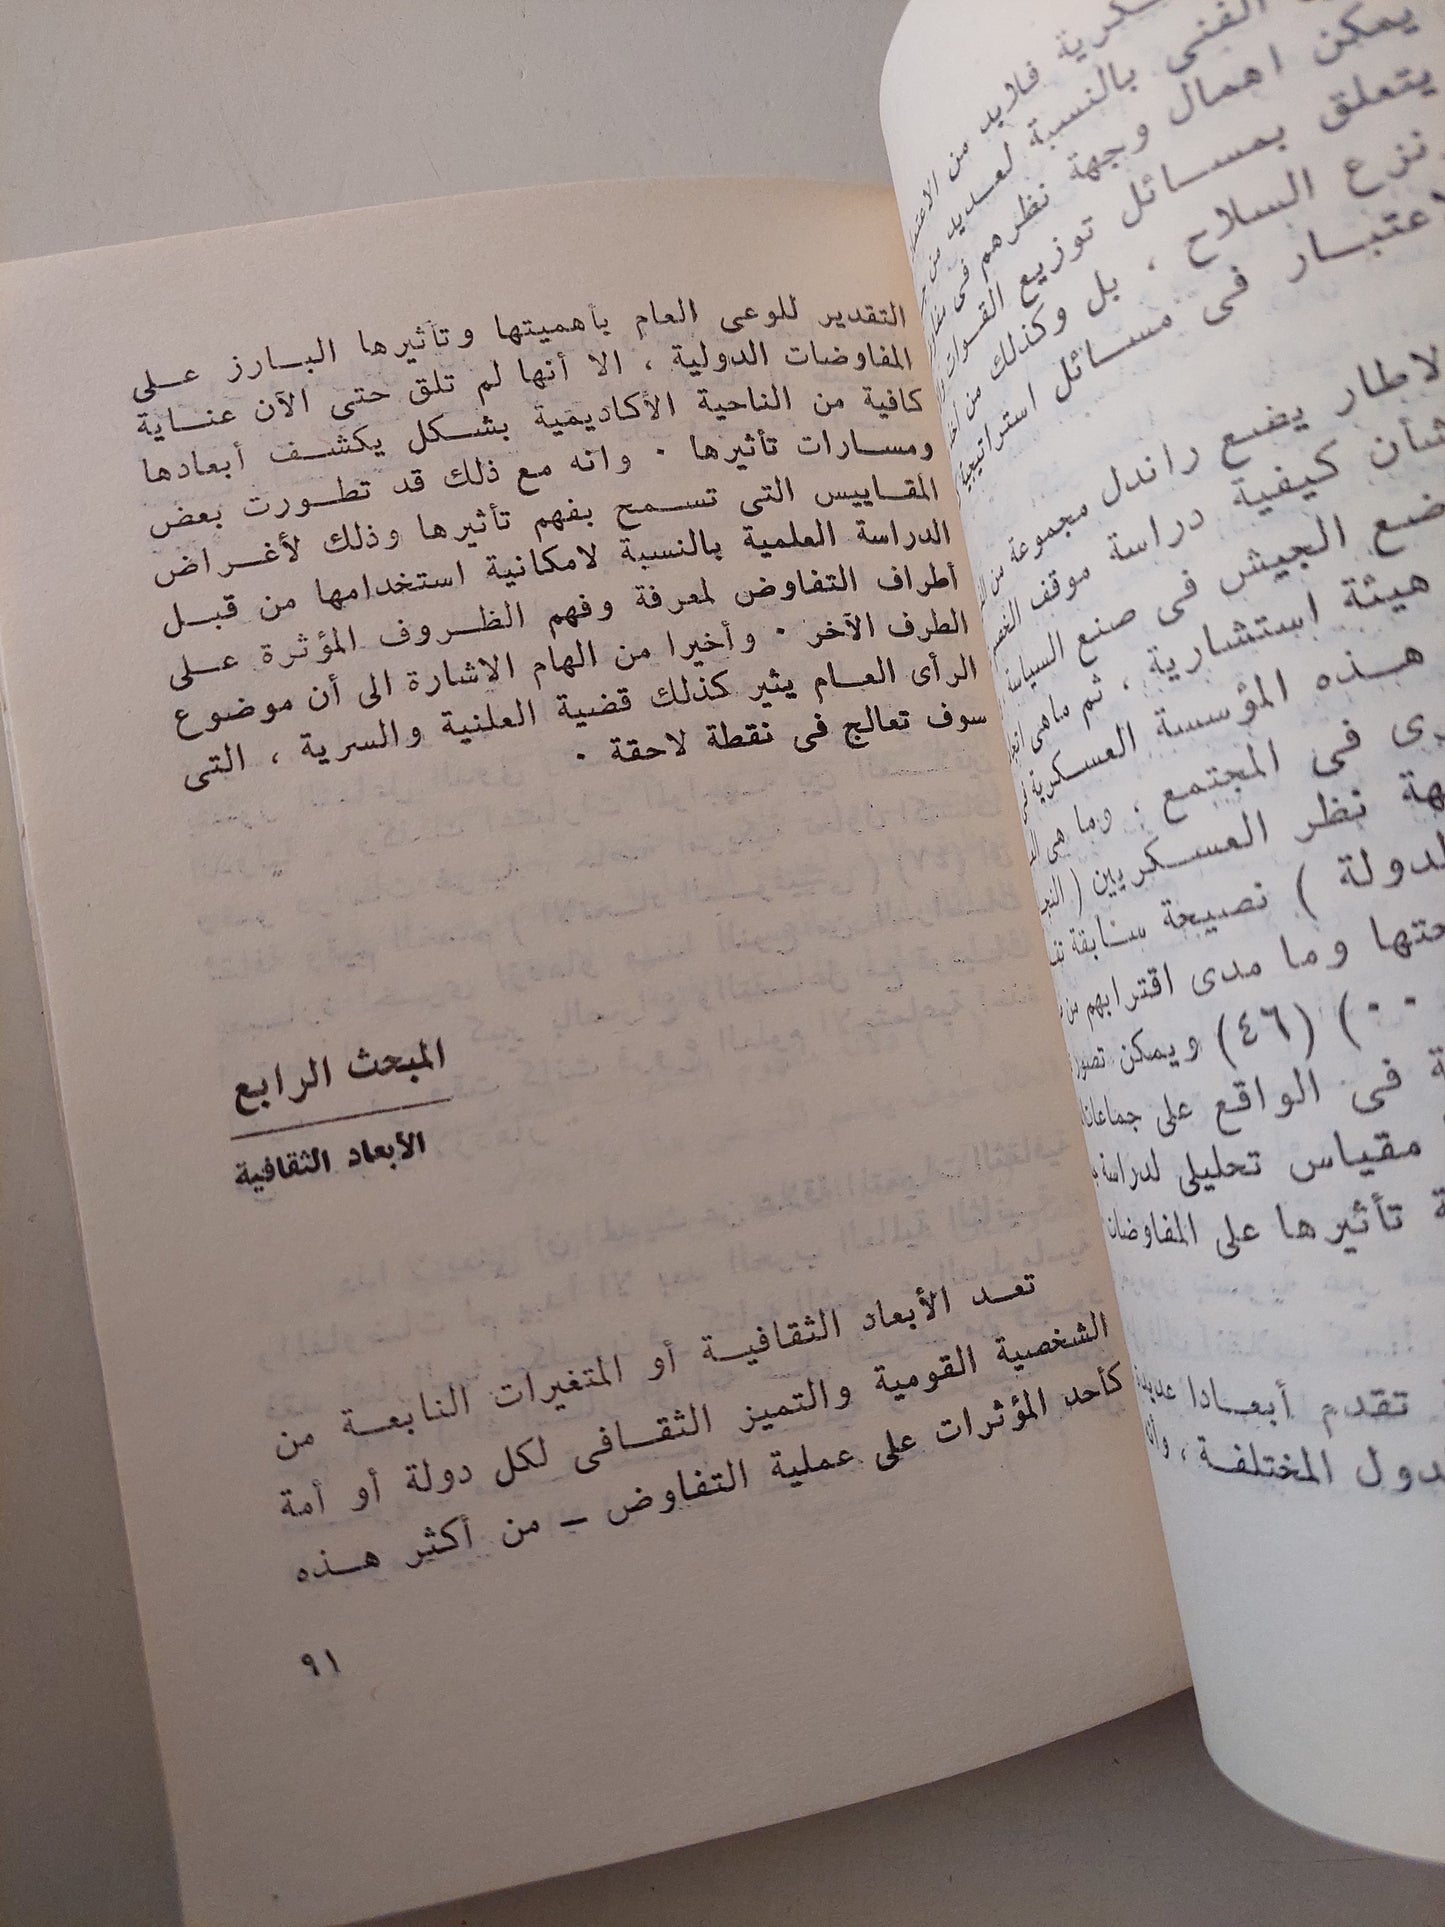 كرية فلابد من
الفنى بالنسبة لعديد من
يمكن اهمال وجهة نظرهم فى
يتعلق بمسائل توزيع القوات
نزع السلاح ، بل وكذلك من
لاعتبار فى مسائل استراتيجية
لاطار يضع راندل مجموعة من
شأن كيفية دراسة موقف
ضع الجيش فى صنع السياسة
هيئة استشارية ، ثم ماهى
هذه المؤسسة العسكرية
رى فى المجتمع ، وما هى
جهة نظر العسكريين (
لدولة ) نصيحة سابقة
حتها وما مدى اقترابهم من
٠٠ ) (٤٦) ويمكن تصور
ة فى الواقع على
مقياس تحليلى لدراسة
ة تأثيرها على المفاوضات
تقدم أبعادا عديدة
دول المختلفة ، وان
التقدير للوعى العام بأهميتها وتأثيرها البارز على
المفاوضات الدولية ، الا أنها لم تلق حتى الآن عناية
كافية من الناحية الأكاديمية بشكل يكشف أبعادها
ومسارات تأثيرها ٠ وانه مع ذلك قد تطورت بعض
المقاييس التى تسمح بفهم تأثيرها وذلك لأغراض
الدراسة العلمية بالنسبة لامكانية استخدامها من قبل
أطراف التفاوض لمعرفة وفهم الظروف المؤثرة على
الطرف الآخر ٠ وأخيرا من الهام الاشارة الى أن موضوع
الرأى العام يثير كذلك قضية العلنية والسرية ، التى
سوف تعالج فى نقطة لاحقة ٠
المبحث الرابع
الأبعاد الثقافية
تعد الأبعاد الثقافية أو المتغيرات النابعة من
الشخصية القومية والتميز الثقافى لكل دولة أو أمة
كأحد المؤثرات على عملية التفاوض – من أكثر هذه
٩١